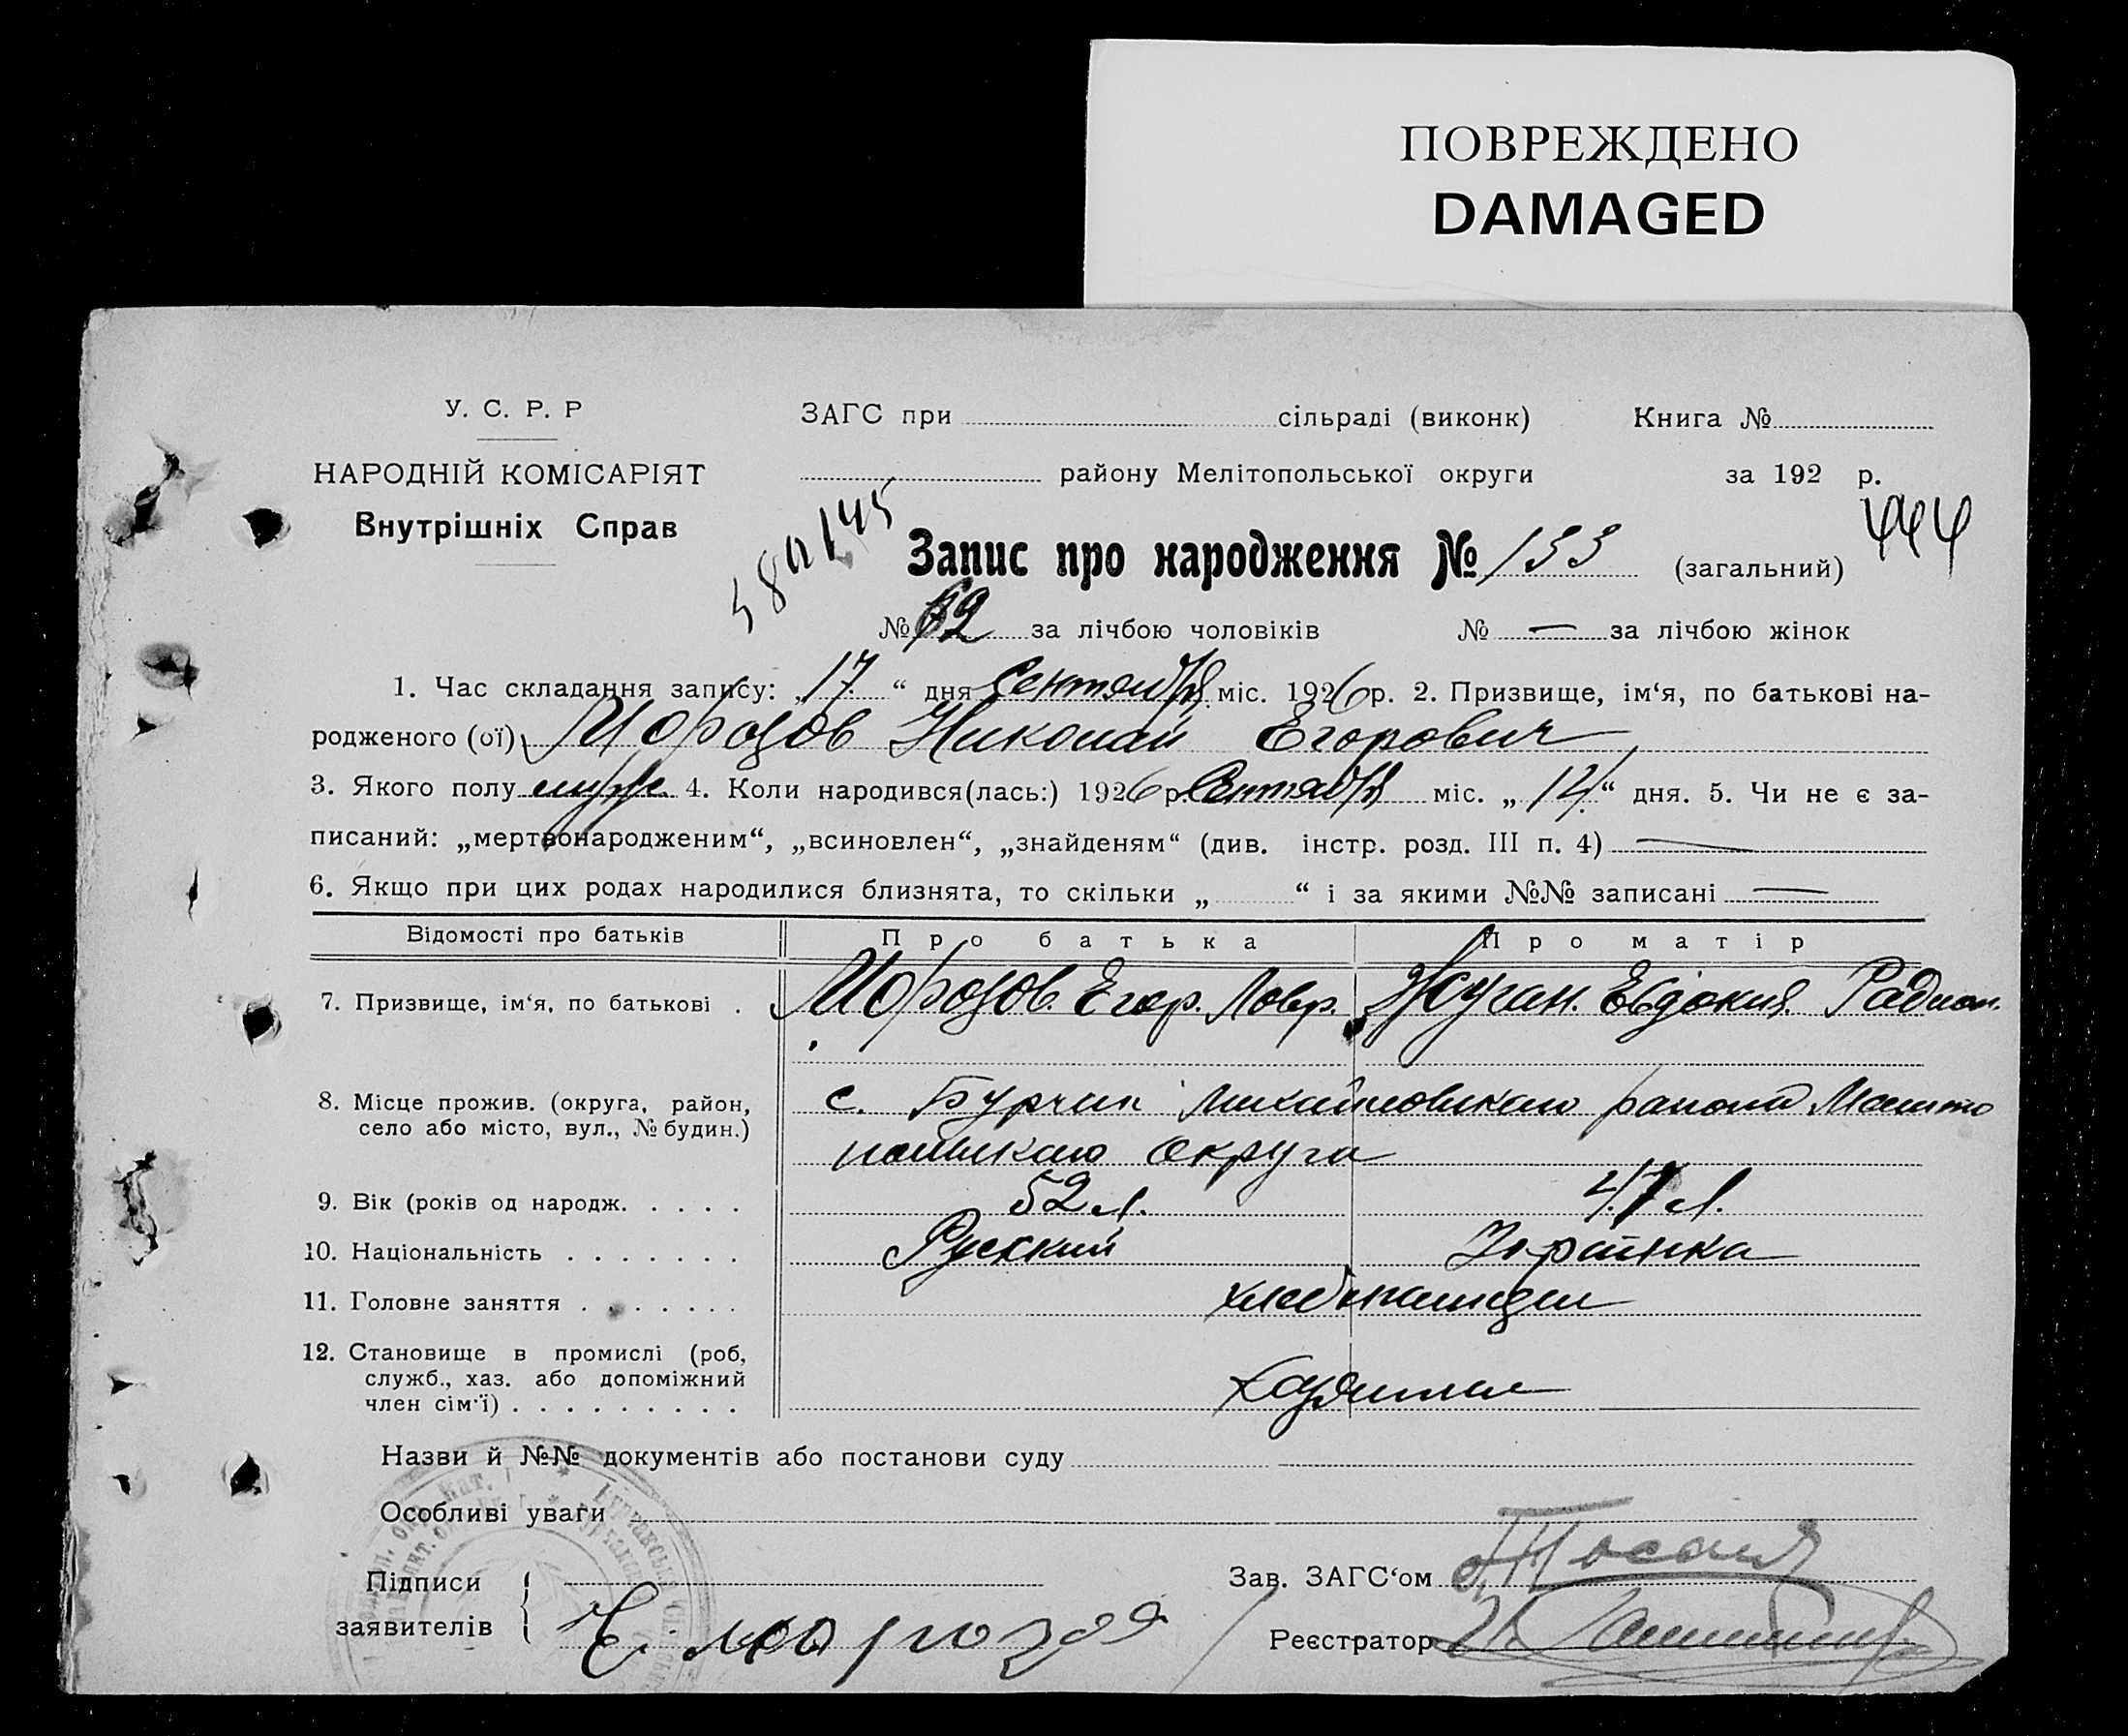 ПОВРЕЖДЕНО
DAMAGED
У. С. Р. Р
НАРОДНІЙ КОМІСАРІЯТ
Внутрішніх Справ
ЗАГС при сільраді (виконк) Книга №
району Мелітопольської округи за 192 р.
444
Запис про народження № 133 (загальний)
№ 62 за лічбою чоловіків № — за лічбою жінок
1. Час складання запису: „17“ дня Сентября міс. 1926 р. 2. Призвище, ім‘я, по батькові на-
родженого (ої) Морозов Николай Егорович
3. Якого полу муж. 4. Коли народився(лась:) 1926 р. Сентября міс. „14.“ дня. 5. Чи не є за-
писаний: „мертвонародженим“, „всиновлен“, „знайденям“ (див. інстр. розд. III п. 4) —
6. Якщо при цих родах народилися близнята, то скільки „ “ і за якими №№ записані —
Відомості про батьків Про батька Про матір
7. Призвище, ім‘я, по батькові . Морозов. Егор. Лавр. Жуган. Евдокия. Радион.
8. Місце прожив. (округа, район, село або місто, вул., № будин.) с. Бурчак Михайловского района Мелито
польского округа
9. Вік (років од народж. . . . . 52 л. 47 л.
10. Національність . . . . . . . Русский Украинка
11. Головне заняття . . . . . . . хлебопашцы
12. Становище в промислі (роб,
служб., хаз. або допоміжний
член сім‘ї) . . . . . . . . .
Назви й №№ документів або постанови суду
Особливі уваги
Підписи
заявителів
Е. морозов
Зав. ЗАГС‘ом
Реєстратор